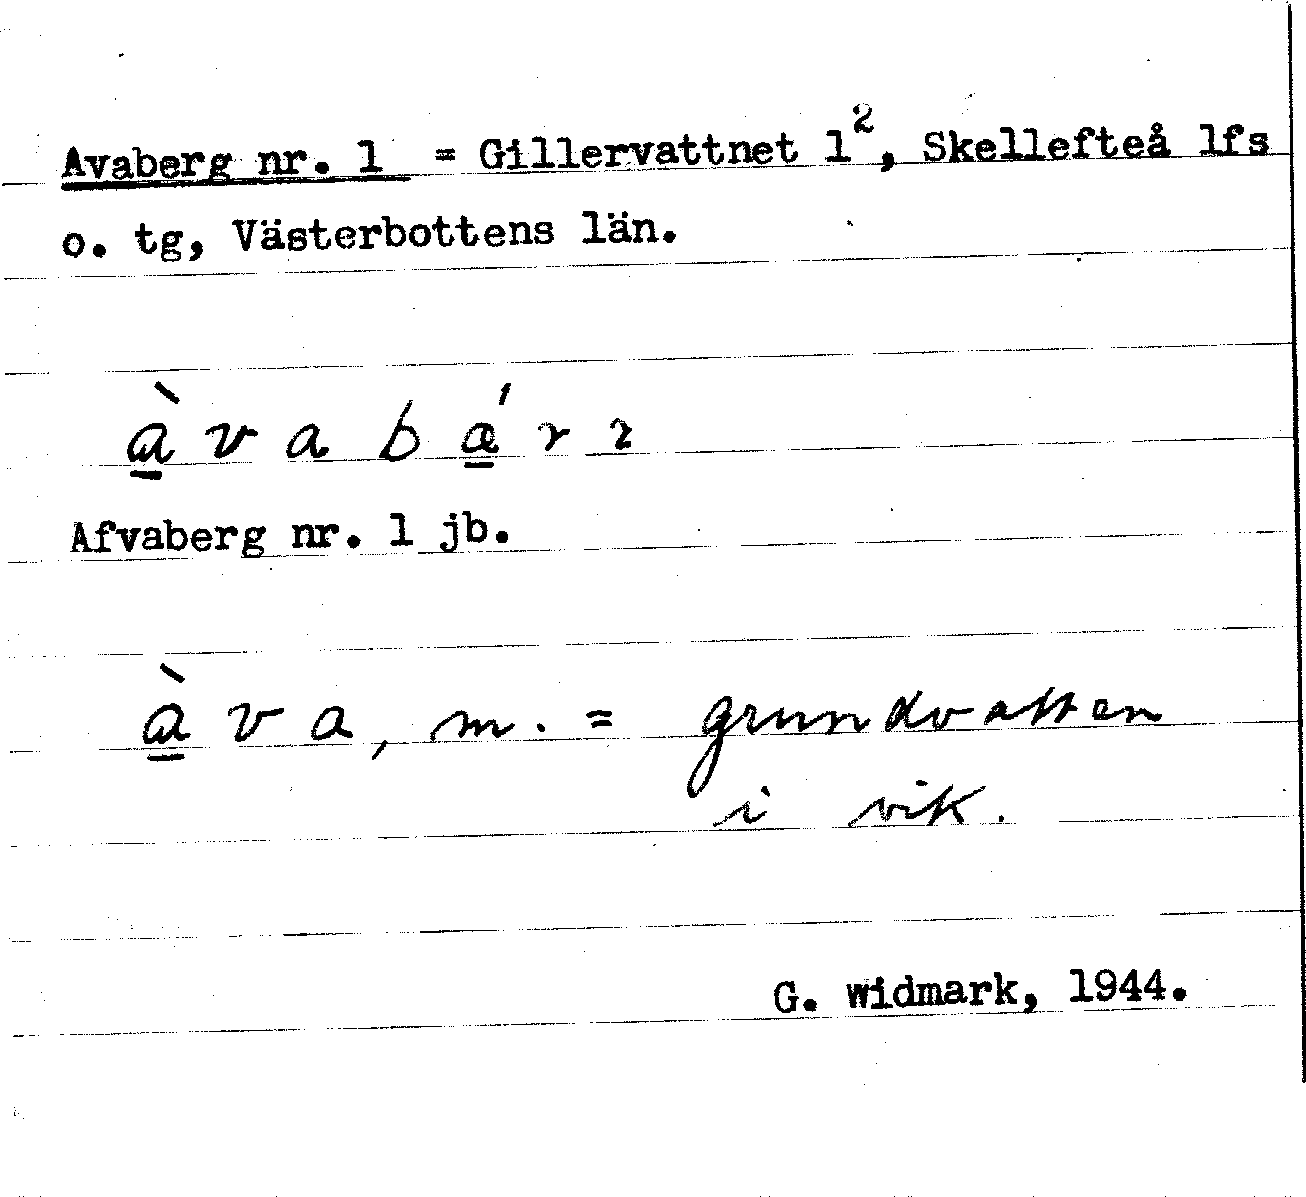 Avaberg nr. 1 = Gillervattnet 1², Skellefteå lfs
o. tg, Västerbottens län.
à̱ v a b ǽ̱ r r
Afvaberg nr. 1 jb.
à̱ v a, m. = grundvatten
i vik.
G. Widmark, 1944.